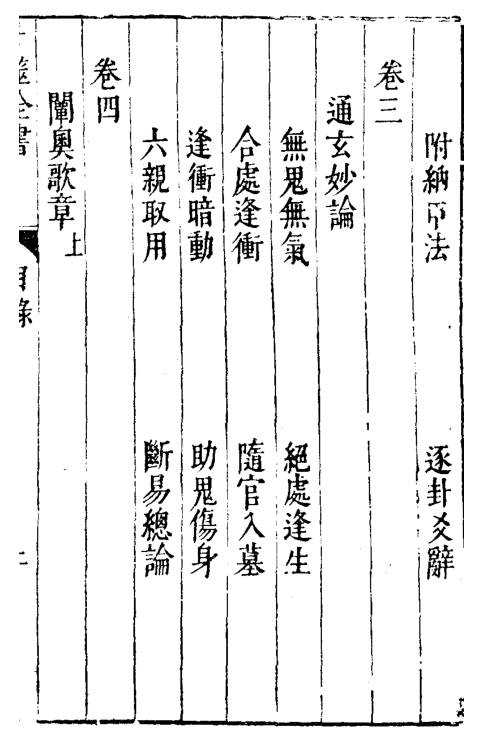 附納甲法　逐卦爻辭
卷三
通玄妙論
無鬼無氣　絕處逢生
合處逢衝　隨官入墓
逢衝暗動　助鬼傷身
六親取用　斷易總論
卷四
闡奧歌章上
筮全書　目錄